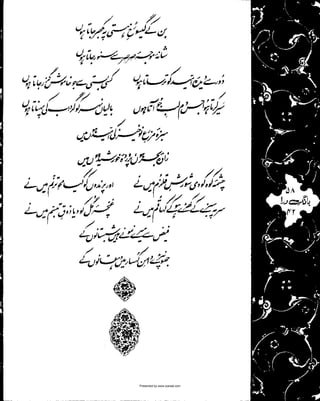 بن کے گیسو رخِ ہستی پہ بکھر جاتا ہوں
شانۂ موجۂ صرصر سے سنور جاتا ہوں
دور سے دیدۂ امید کو ترساتا ہوں کسی بستی سے جو خاموش گزر جاتا ہوں
سیر کرتا ہوا جس دم لبِ جو آتا ہوں بالیاں نہر کو گرداب کی پہناتا ہوں
سبزۂ مزرعِ نوخیز کی امید ہوں میں
زادۂ بحر ہوں، پروردۂ خورشید ہوں میں
چشمۂ کوہ کو دی شورشِ قلزم میں نے اور پرندوں کو کیا محوِ ترنم میں نے
سر پہ سبزے کے کھڑے ہو کے کہا قُم میں نے غنچۂ گل کو دیا ذوقِ تبسم میں نے
فیض سے میرے نمونے ہیں شبستانوں کے
جھونپڑے دامنِ کہسار میں دہقانوں کے
۵۸
بانگِ درا
۴۲
Presented by www.iqbalat.com